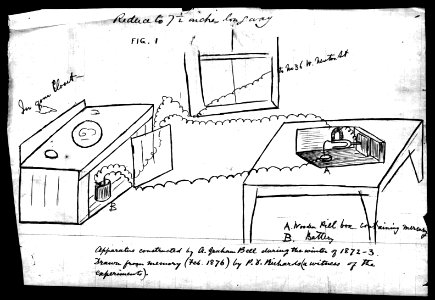 Reduce to 7½ inches long way
FIG. 1
to No 36 W. Newton St
In your Closet
A
B
A. Wooden Pill box containing mercury
B. Battery
Apparatus constructed by A. Graham Bell during the winter of 1872-3.
Drawn from memory (Feb. 1876) by P. D. Richards (a witness of the
experiments).